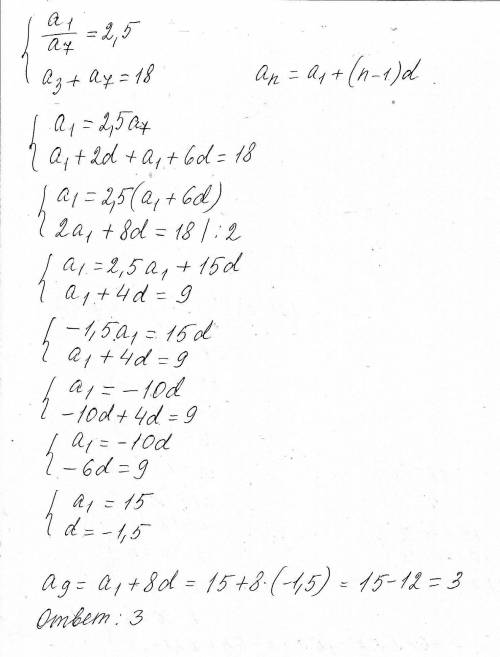 a₁/a₇ = 2,5
a₃ + a₇ = 18
aₙ = a₁ + (n-1)d
a₁ = 2,5a₇
a₁ + 2d + a₁ + 6d = 18
a₁ = 2,5(a₁ + 6d)
2a₁ + 8d = 18 | : 2
a₁ = 2,5a₁ + 15d
a₁ + 4d = 9
-1,5a₁ = 15d
a₁ + 4d = 9
a₁ = -10d
-10d + 4d = 9
a₁ = -10d
-6d = 9
a₁ = 15
d = -1,5
a₉ = a₁ + 8d = 15 + 8·(-1,5) = 15 - 12 = 3
Ответ: 3